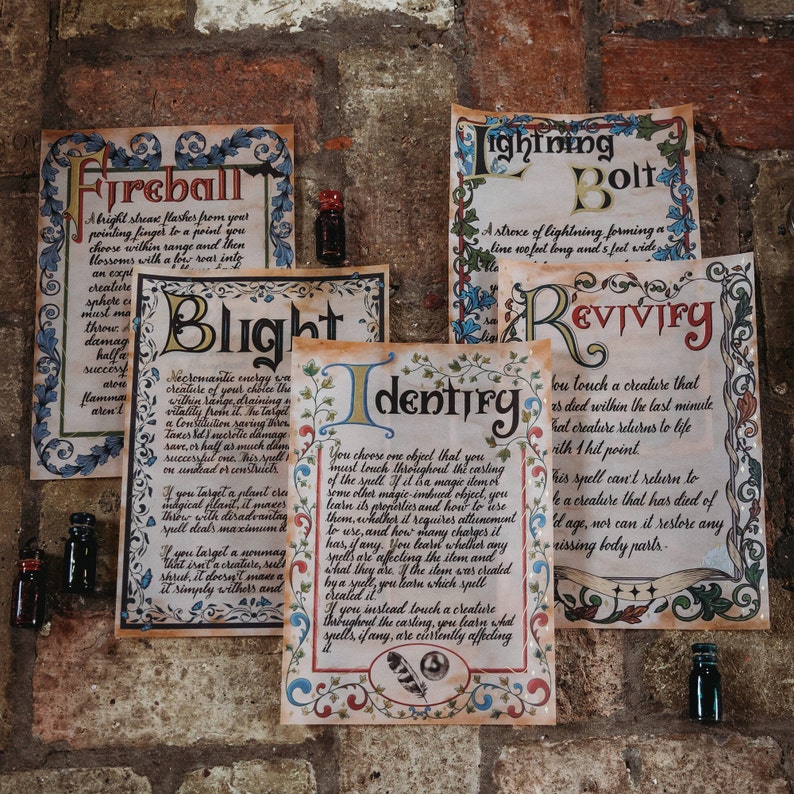 Fireball
A bright streak flashes from your
pointing finger to a point you
choose within range and then
blossoms with a low roar into
an
creature
sphere
must
throw.
damag
half
success
around
flamma
aren't
Lightning
Bolt
A stroke of lightning forming a
line 100 feet long and 5 feet wide
Blight
Necromantic energy wa
creature of your choice tha
within range, draining
vitality from it. The target
a Constitution saving throw
takes 8d8 necrotic damage
save, or half as much dam
successful one. This spell
on undead or constructs.
If you target a plant crea
magical plant, it makes
throw with disadvantag
spell deals maximum
If you target a nonmag
that isn't a creature, suc
shrub, it doesn't make a
it simply withers and
Revivify
You touch a creature that
has died within the last minute.
That creature returns to life
with 1 hit point.
This spell can't return to
life a creature that has died of
old age, nor can it restore any
missing body parts.
Identify
You choose one object that you
must touch throughout the casting
of the spell. If it is a magic item or
some other magic-imbued object, you
learn its properties and how to use
them, whether it requires attunement
to use, and how many charges it
has, if any. You learn whether any
spells are affecting the item and
what they are. If the item was created
by a spell, you learn which spell
created it.
If you instead touch a creature
throughout the casting, you learn what
spells, if any, are currently affecting
it.